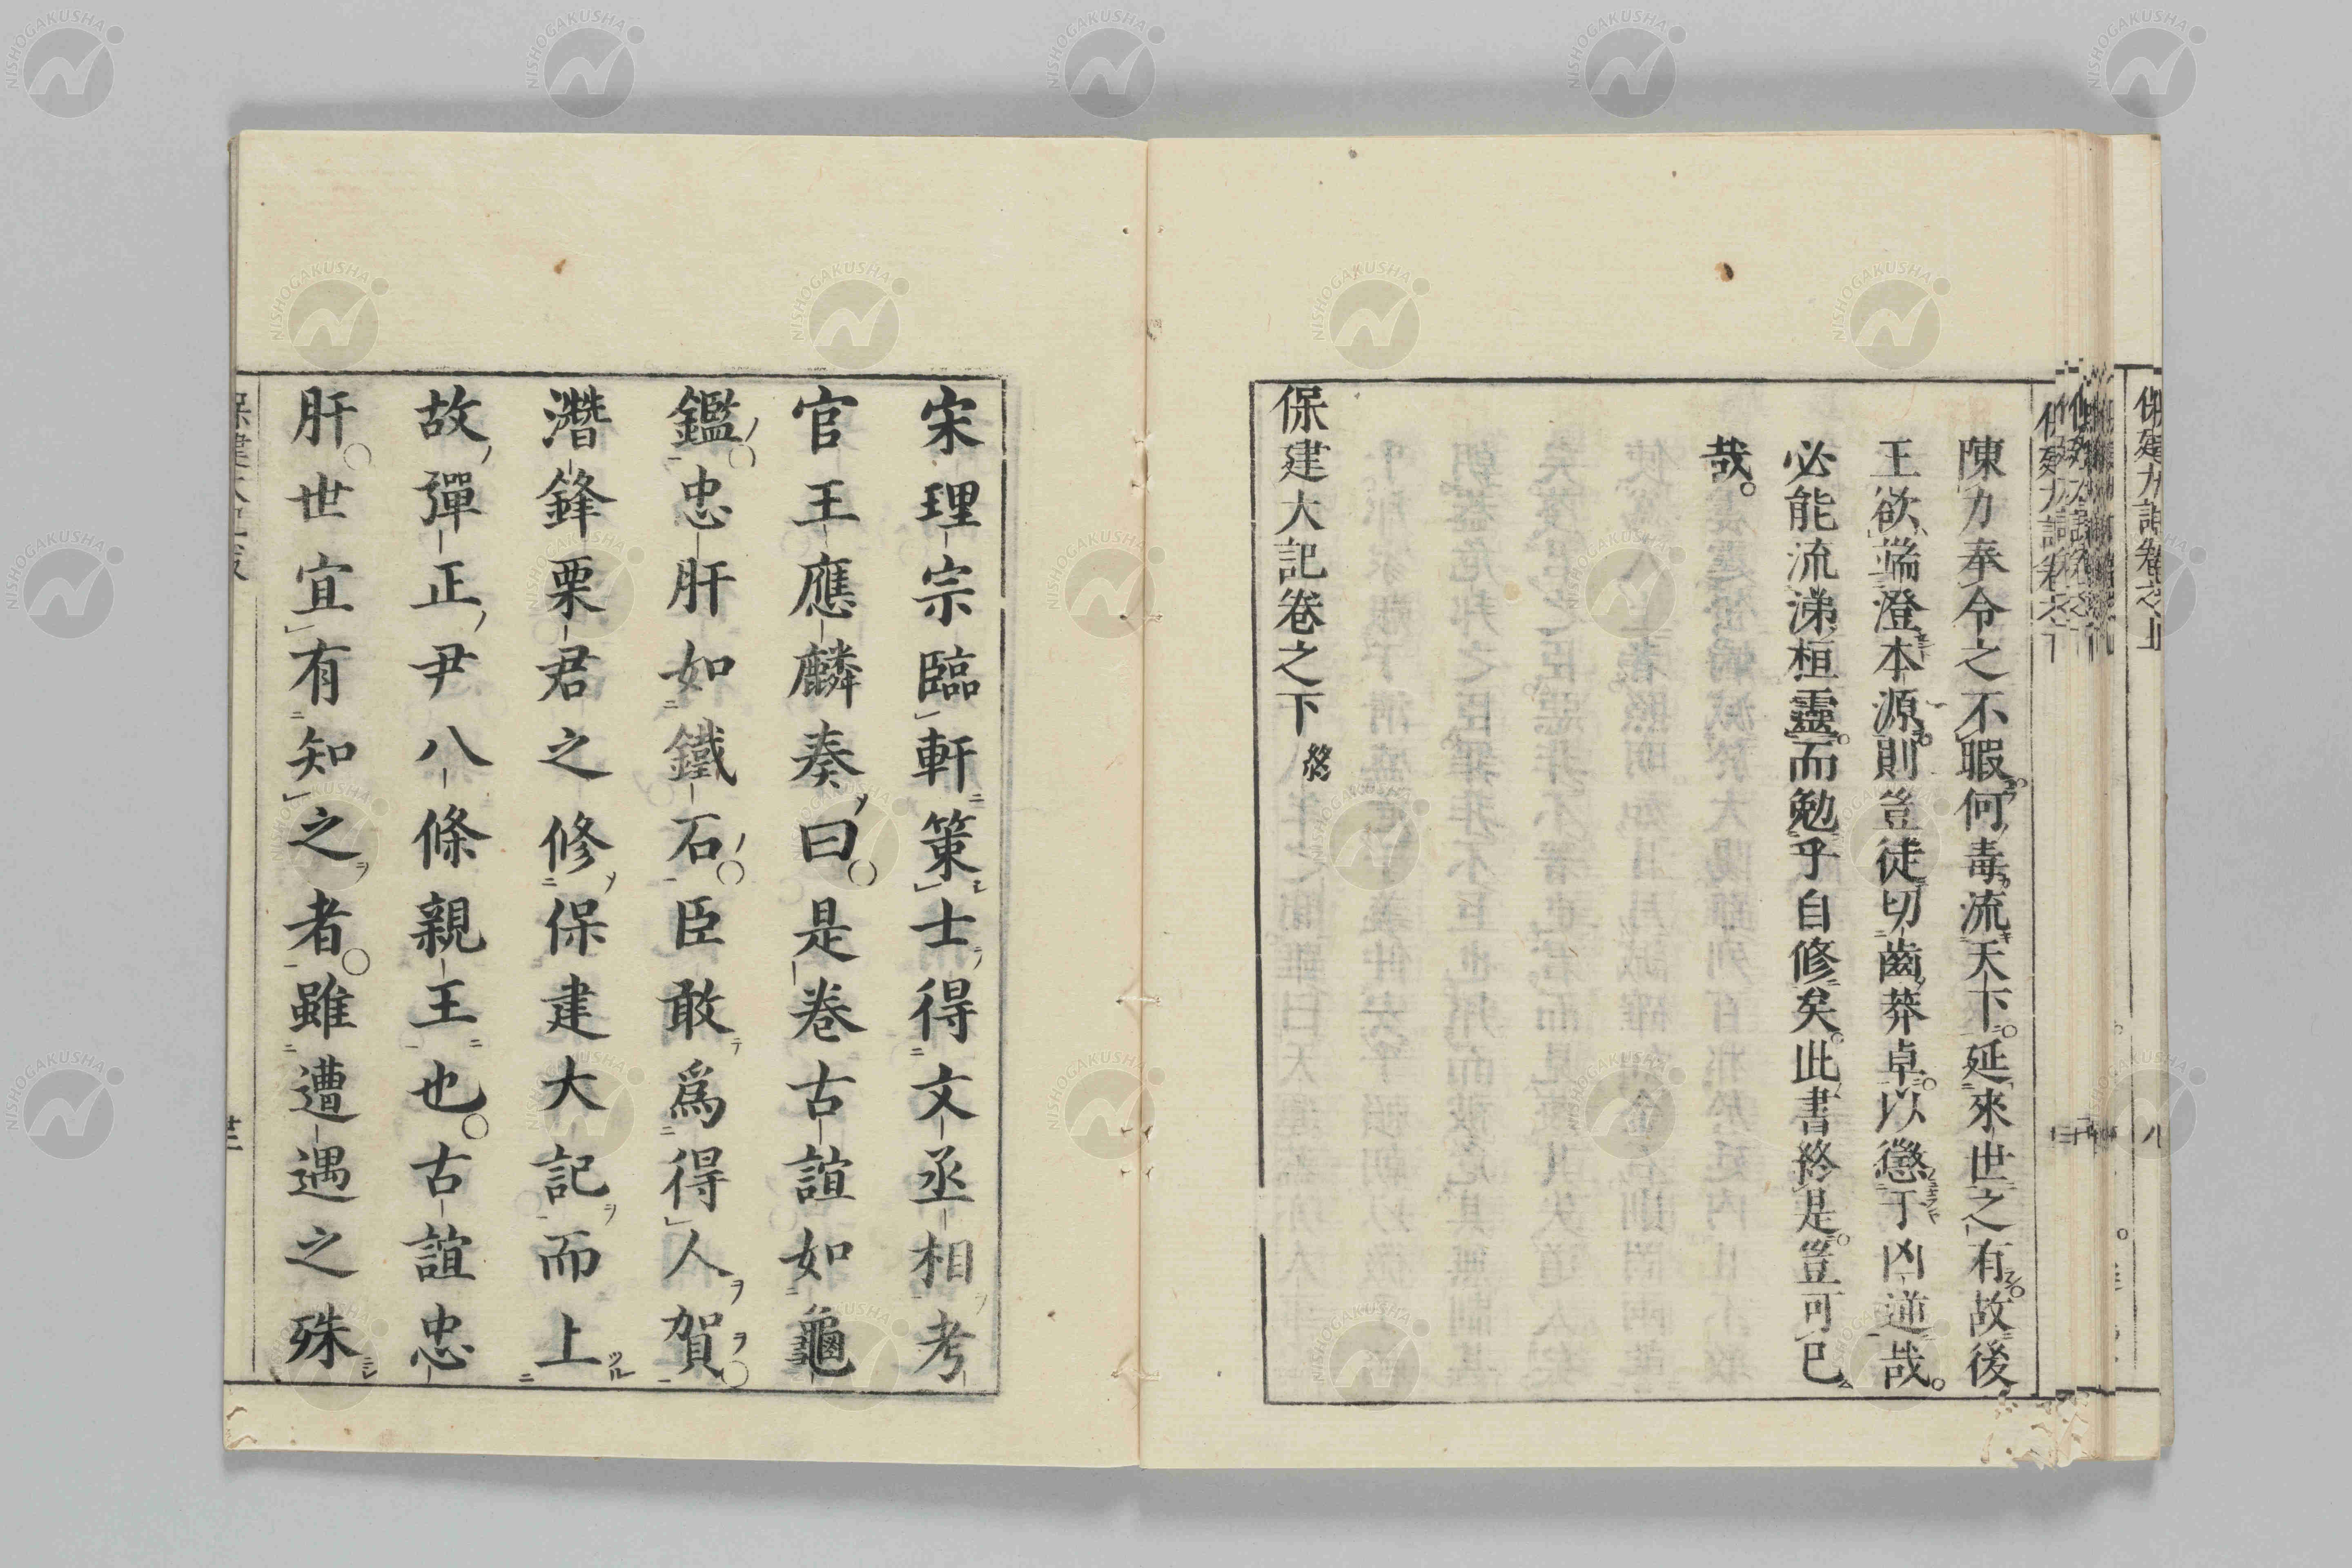 陳力奉令之不暇何毒流天下延來世之有故後
王欲端澄本源則豈徒切齒莽卓以懲于凶逆哉
必能流涕桓靈而勉乎自修矣此書務是豈可已
哉
保建大記卷之下 終
宋理宗臨軒策士得文丞相考
官王應麟奏曰是卷古誼如龜
鑑忠肝如鐵石臣敢爲得人賀
潛鋒栗君之修保建大記而上
故彈正尹八條親王也古誼忠
肝世宜有知之者雖遭遇之殊
NISHOGAKUSHA